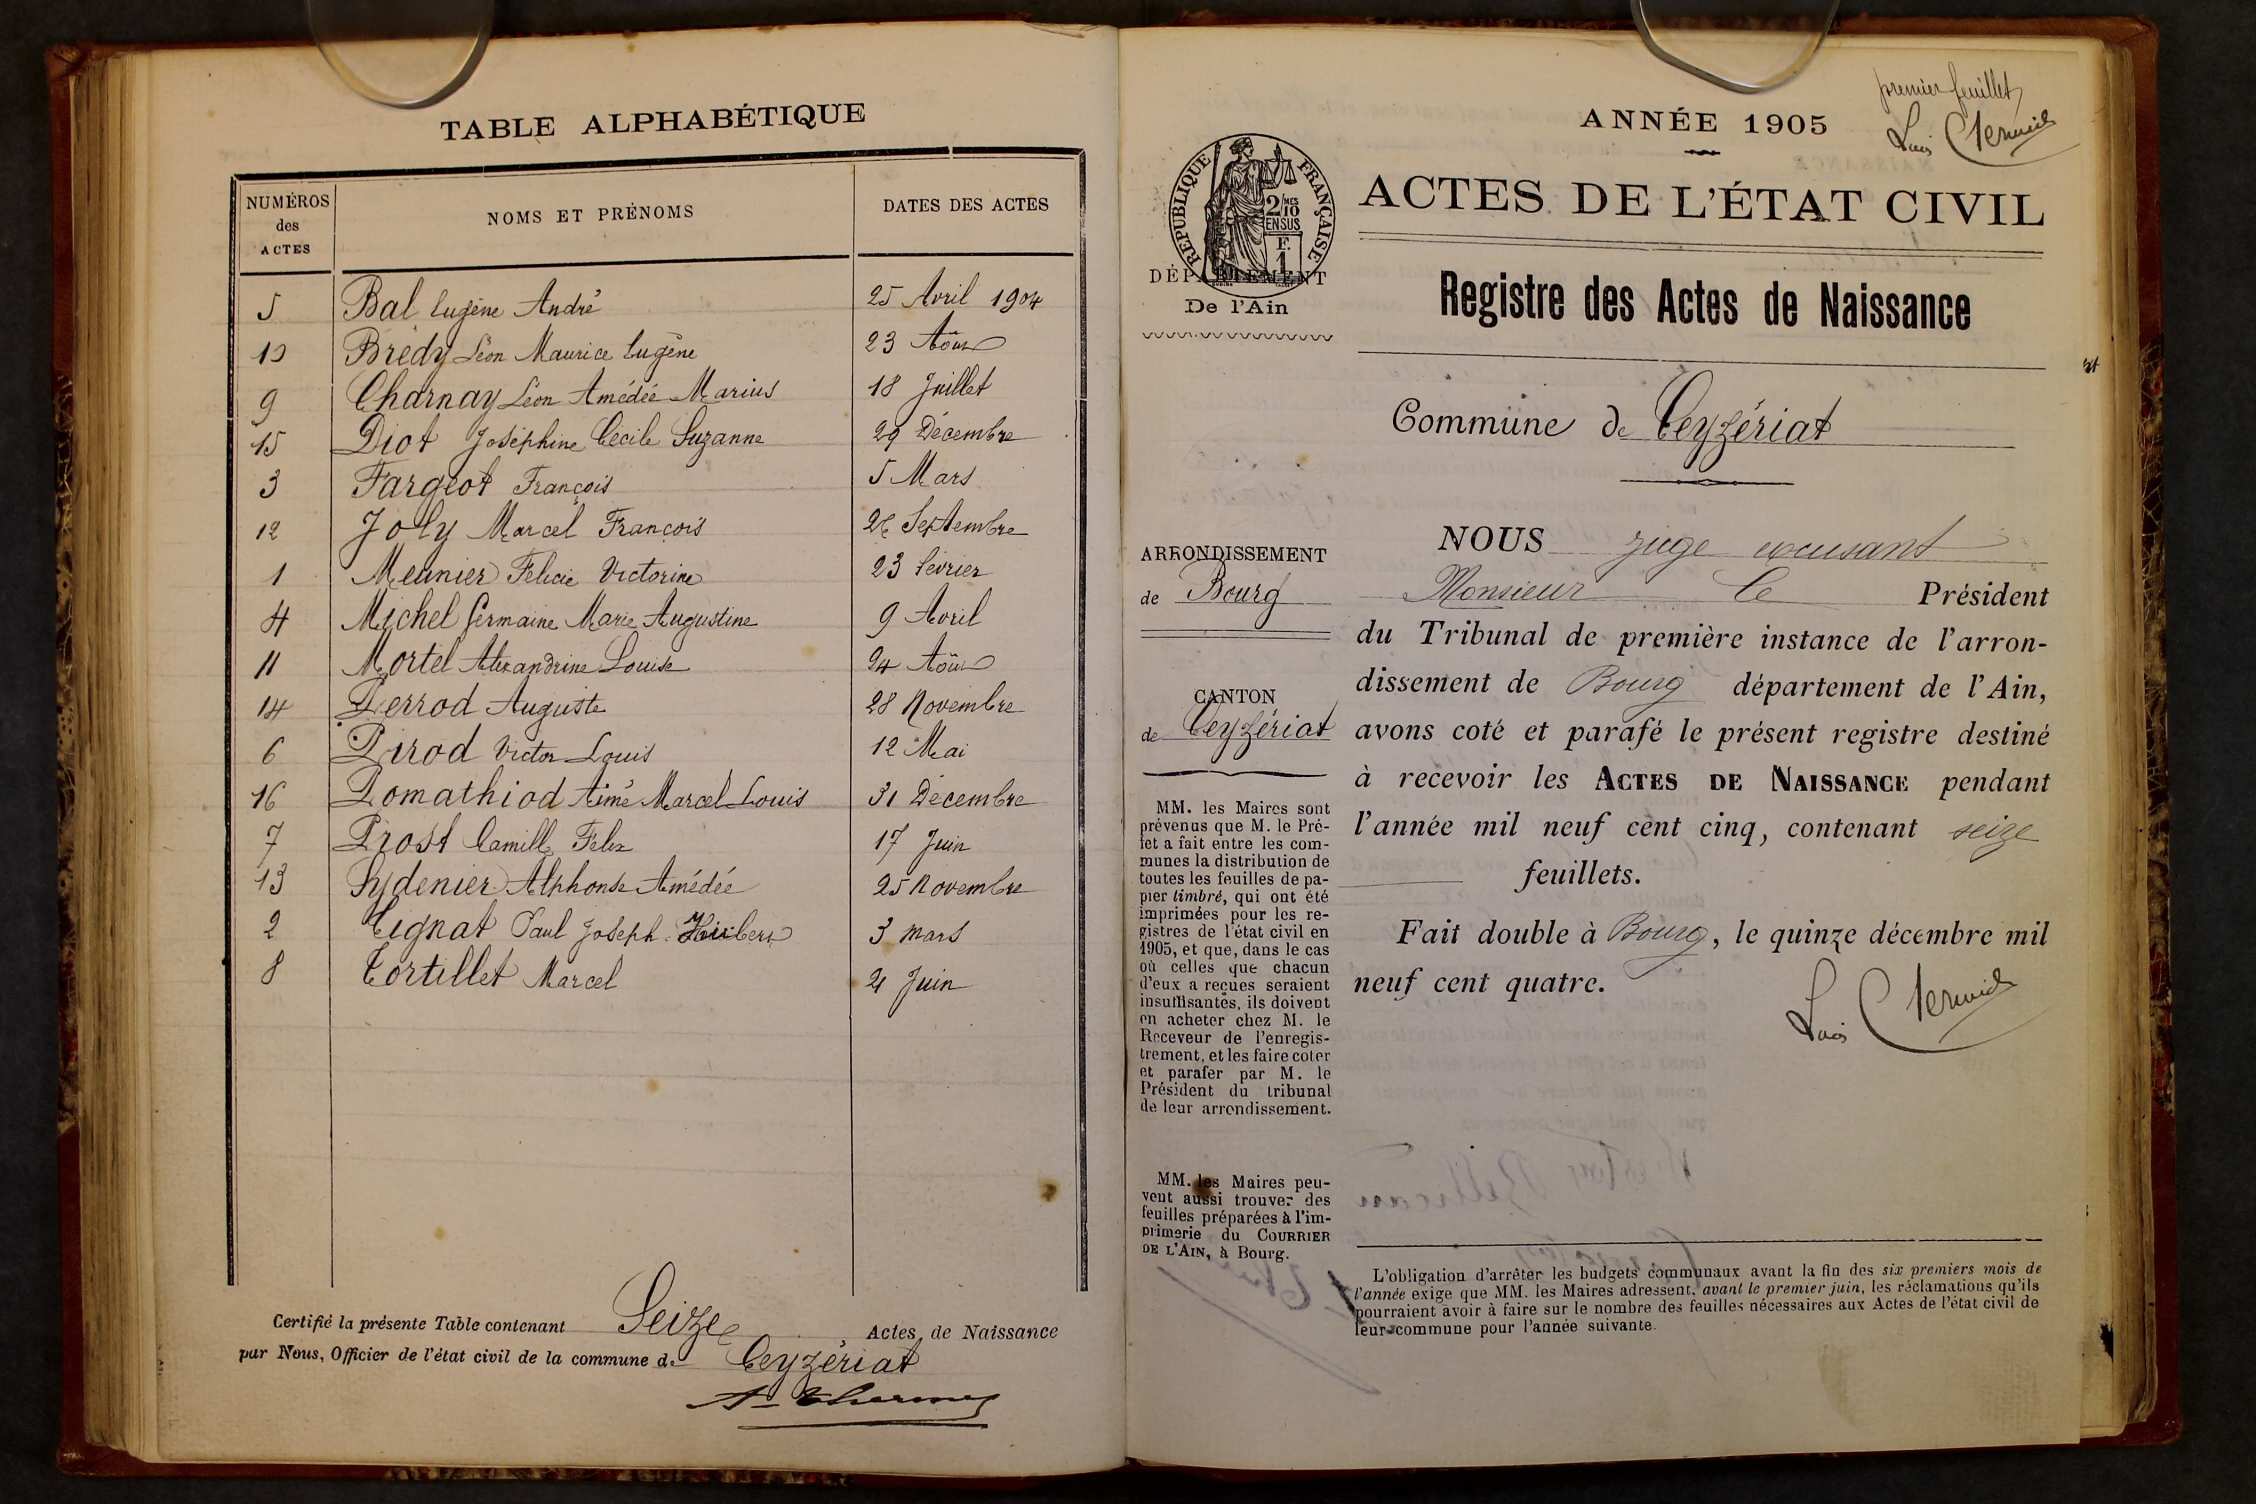 TABLE ALPHABÉTIQUE
NUMÉROS
des
ACTES
NOMS ET PRÉNOMS
DATES DES ACTES
5 Bal Eugène André 25 Avril 1904
10 Brédy Léon Maurice Eugène 23 Août
9 Charnay Léon Amédée Marius 18 Juillet
15 Diot Joséphine Cécile Suzanne 29 Décembre
3 Fargeot François 5 Mars
12 Joly Marcel François 26 Septembre
1 Meunier Félicie Victorine 23 Février
4 Michel Germaine Marie Augustine 9 Avril
11 Mortel Alexandrine Louise 24 Août
14 Perrod Auguste 28 Novembre
6 Pirod Victor Louis 12 Mai
16 Pomathiod Aimé Marcel Louis 31 Décembre
7 Prost Camille Felix 17 Juin
13 Sydenier Alphonse Amédée 25 Novembre
2 Tignat Paul Joseph 3 mars
8 Tortillet Marcel 21 Juin
Certifié la présente Table contenant Seize, Actes de Naissance
par Nous, Officier de l'état civil de la commune de Ceyzériat
premier feuillet
ANNÉE 1905
RÉPUBLIQUE FRANÇAISE
2/10 MES
EN SUS
F.
1
ACTES DE L'ÉTAT CIVIL
DÉPARTEMENT
De l'Ain
Registre des Actes de Naissance
Commune de Ceyzériat
ARRONDISSEMENT
de Bourg
CANTON
de Ceyzériat
MM. les Maires sont
prévenus que M. le Pré-
fet a fait entre les com-
munes la distribution de
toutes les feuilles de pa-
pier timbré, qui ont été
imprimées pour les re-
gistres de l'état civil en
1905, et que, dans le cas
où celles que chacun
d'eux a reçues seraient
insuffisantes, ils doivent
en acheter chez M. le
Receveur de l'enregis-
trement, et les faire coter
et parafer par M. le
Président du tribunal
de leur arrondissement.
MM. les Maires peu-
vent aussi trouver des
feuilles préparées à l'im-
primerie du COURRIER
DE L'AIN, à Bourg.
NOUS juge excusant
Monsieur le Président
du Tribunal de première instance de l'arron-
dissement de Bourg département de l'Ain,
avons coté et parafé le présent registre destiné
à recevoir les ACTES DE NAISSANCE pendant
l'année mil neuf cent cinq, contenant seize
feuillets.
Fait double à Bourg, le quinze décembre mil
neuf cent quatre.
L'obligation d'arrêter les budgets communaux avant la fin des six premiers mois de
l'année exige que MM. les Maires adressent, avant le premier juin, les réclamations qu'ils
pourraient avoir à faire sur le nombre des feuilles nécessaires aux Actes de l'état civil de
leur commune pour l'année suivante.